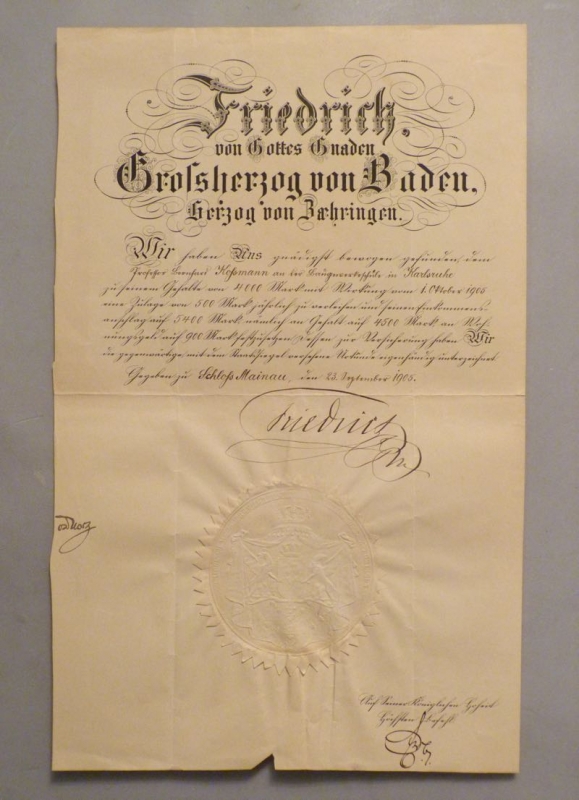 Friedrich,
von Gottes Gnaden
Grossherzog von Baden,
Herzog von Zæhringen.
Wir haben Uns gnädigst bewogen gefunden, dem
Professor Bernhard Koßmann an der Baugewerkschule in Karlsruhe
zu seinem Gehalte von 4000 Mark mit Wirkung vom 1. Oktober 1905
eine Zulage von 500 Mark jährlich zu verleihen und seinen Einkommens-
anschlag auf 5400 Mark, nämlich an Gehalt auf 4500 Mark, an Woh-
nungsgeld auf 900 Mark festzusetzen. Dessen zur Versicherung haben Wir
die gegenwärtige mit dem Staatssiegel versehene Urkunde eigenhändig unterzeichnet.
Gegeben zu Schloß Mainau, den 23. September 1905.
Friedrich
Auf Seiner Königlichen Hoheit
Höchsten Befehl